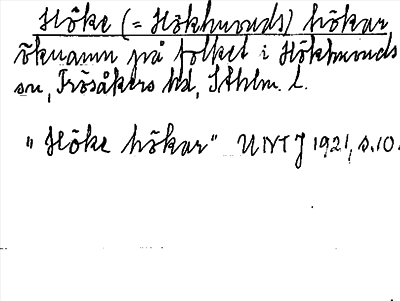 Höke (= Hökhuvuds) hökar
öknamn på folket i Hökhuvuds
sn, Frösåkers hd, Sthlm l.
"Höke hökar" UNT J 1921, s. 10.